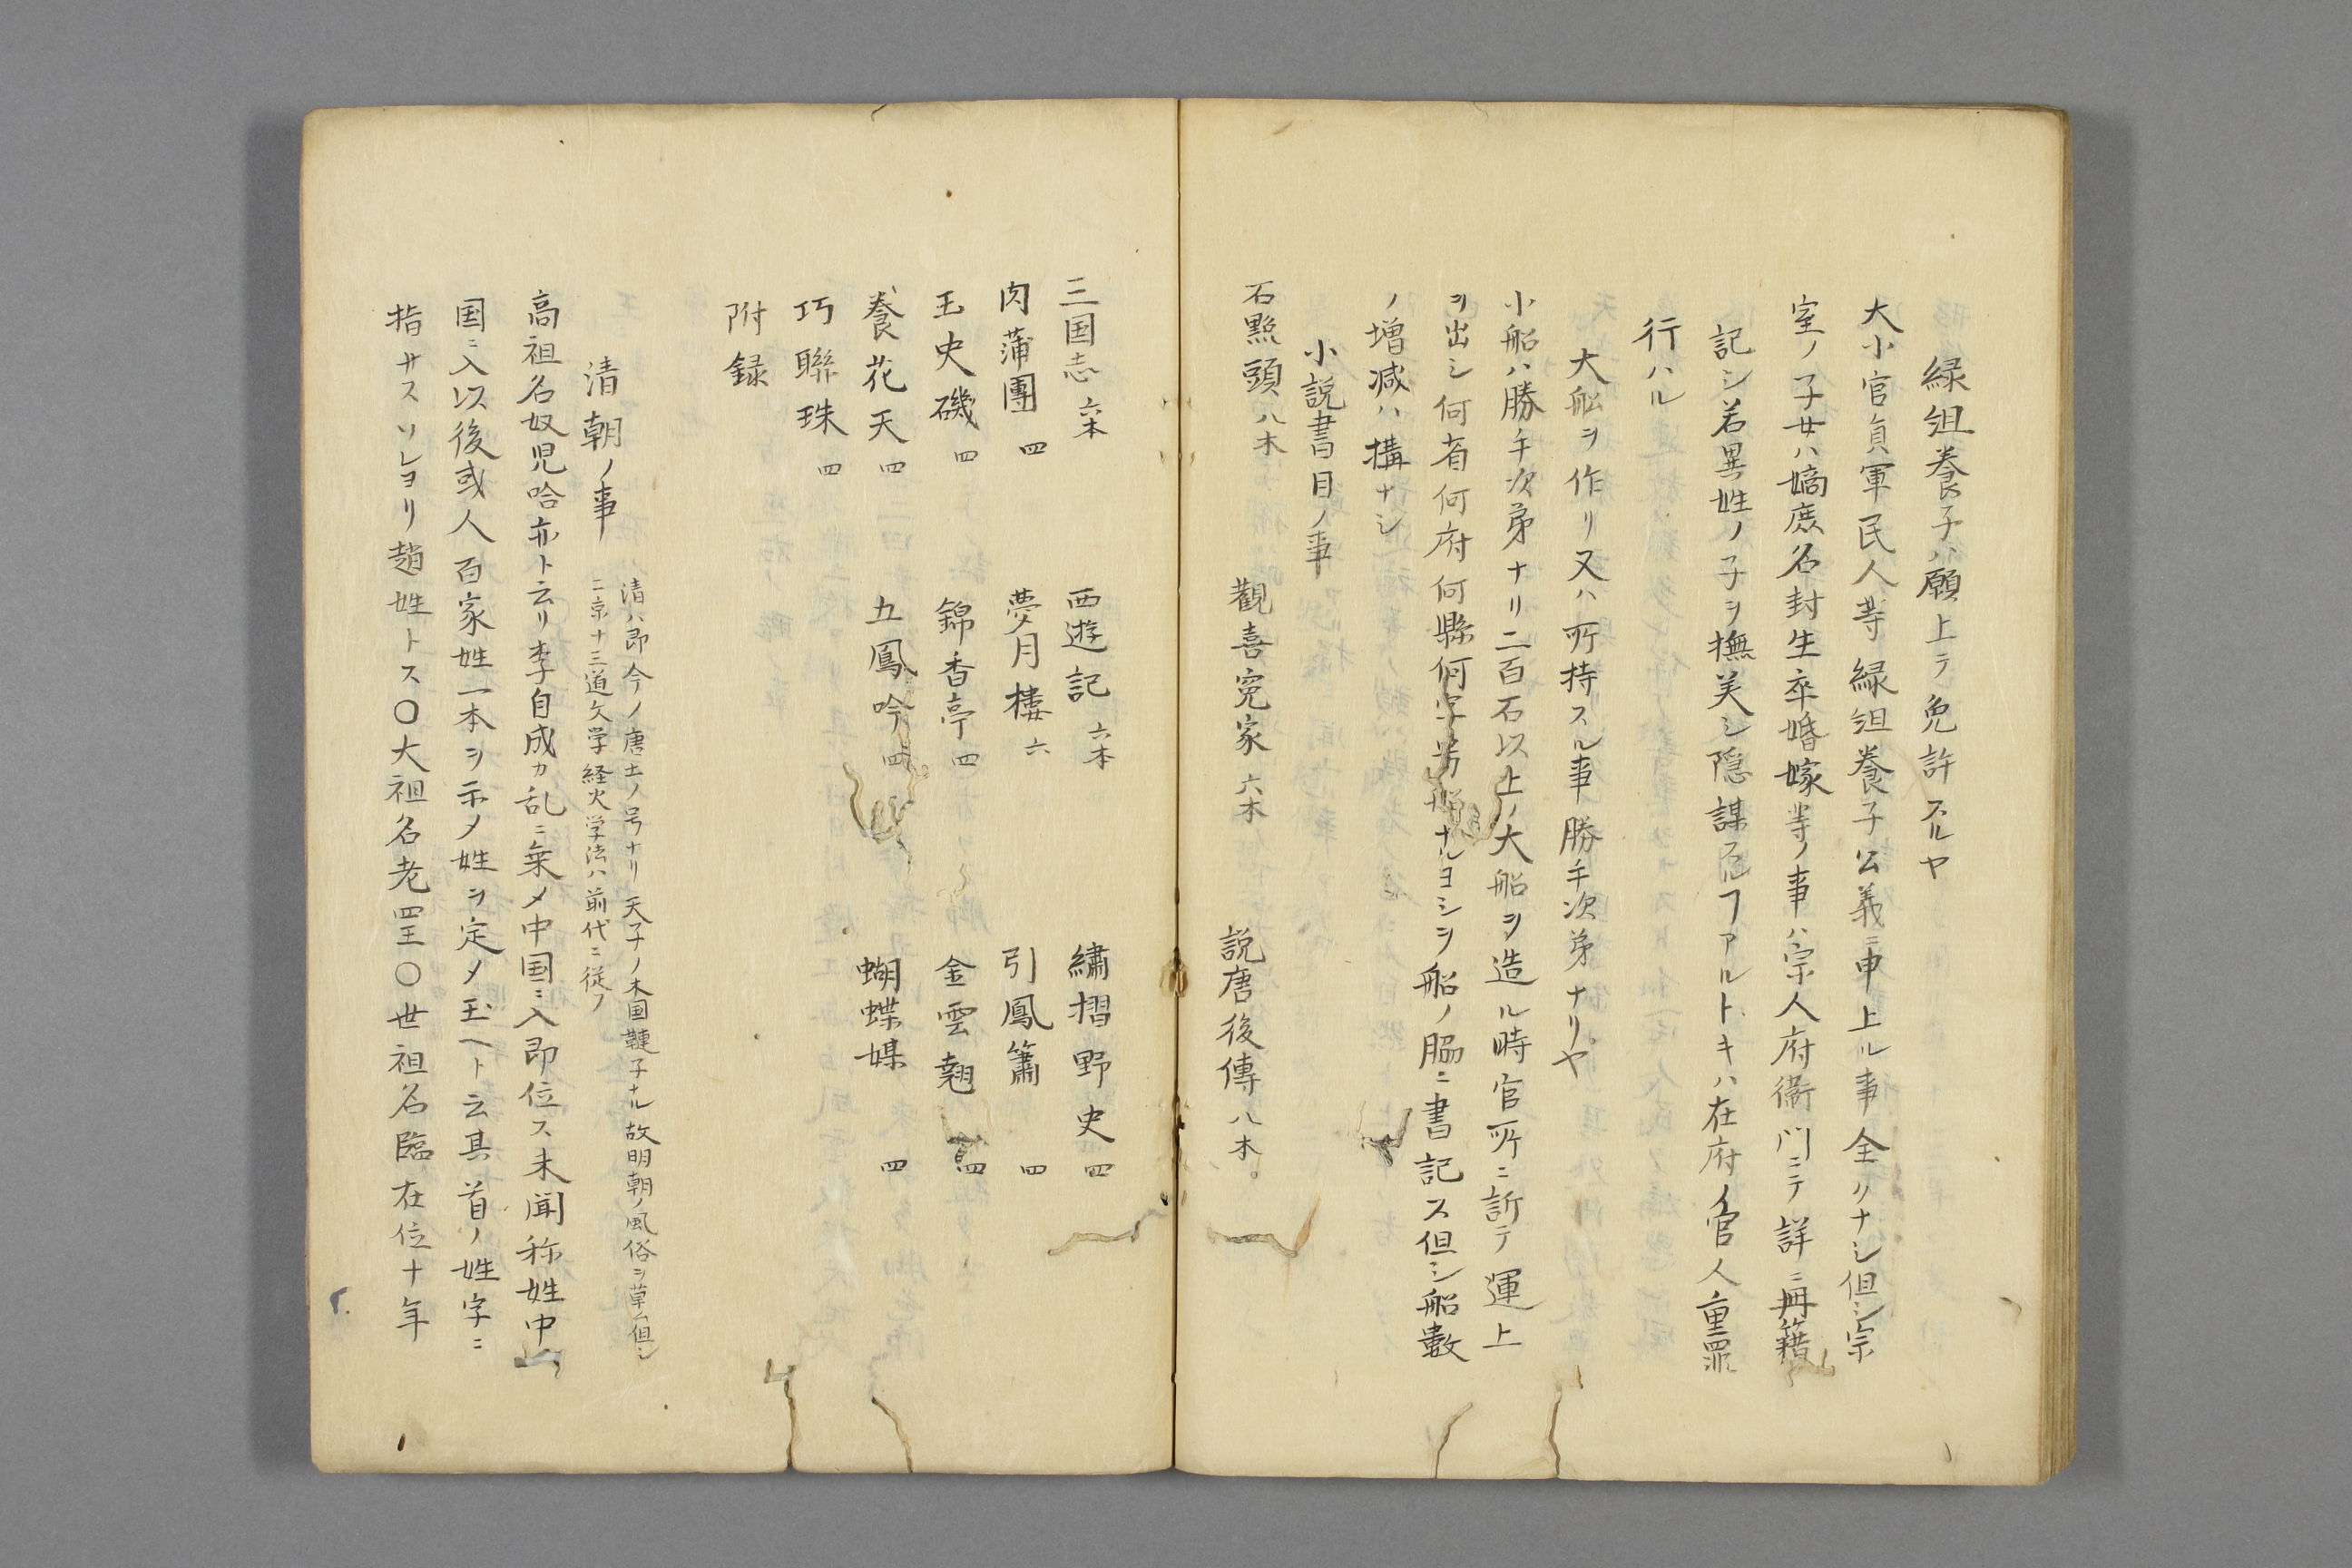 緑組養子ハ願上テ免許スルヤ
大小官員軍民人等緑組養子公義ニ申上ル事全クナシ但シ宗
室ノ子女ハ嫡庶名封生卒婚嫁等ノ事ハ宗人府衞門ニテ詳ニ冊籍
記シ若異姓ノ子ヲ撫美シ隠謀スルヿアルトキハ在府ノ官人重罪
行ハル
大舩ヲ作リ又ハ所持スル事勝手次第ナリヤ
小船ハ勝手次第ナリ二百石以上ノ大船ヲ造ル時官所ニ訴テ運上
ヲ出シ何省何府何縣何字号船ナルヨシヲ船ノ脇ニ書記ス但シ船數
ノ増减ハ構ナシ
小説書目ノ事
石㸃頭 八本 觀喜寃家 六本 説唐後傳 八本。
三国志 六本 西遊記 六本 繡摺野史 四
肉蒲團 四 夢月楼 六 引鳳簫 四
玉史磯 四 錦香亭 四 金雲翹 四
養花天 四 五鳳吟 四 蝴蝶媒 四
巧聯珠 四
附録
清朝ノ事 清ハ即今ノ唐土ノ号ナリ天子ノ本国韃子ナル故明朝ノ風俗ヲ革ム但シ
二京十三道文学経火学法ハ前代ニ従フ
高祖名奴児哈赤ト云リ李自成カ乱ニ乗メ中国ニ入即位ス未聞称姓中
国ニ入以後或人百家姓一本ヲ示メ姓ヲ定メ玉ヘト云其首ノ姓字ニ
指サスソレヨリ趙姓トス〇大祖名老罕王〇世祖名臨在位十年